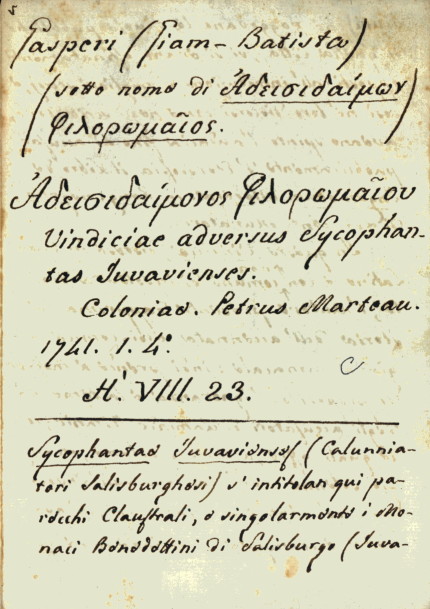 Gasperi (Giam-Batista)
(sotto nome di Ἀδεισιδαίμων
Φιλορωμαῖος.)
Ἀδεισιδαίμονος Φιλορωμαῖου
Vindiciae adversus Sycophan-
tas Juvavienses.
Coloniae. Petrus Marteau.
1741. 1. 4.º
H. VIII. 23.
Sycophantae Juvavienses (Calunnia-
tori Salisburghesi) s' intitolan qui pa-
rocchi Claustrali, e singolarmente i Mo-
naci Benedettini di Salisburgo (Juva-